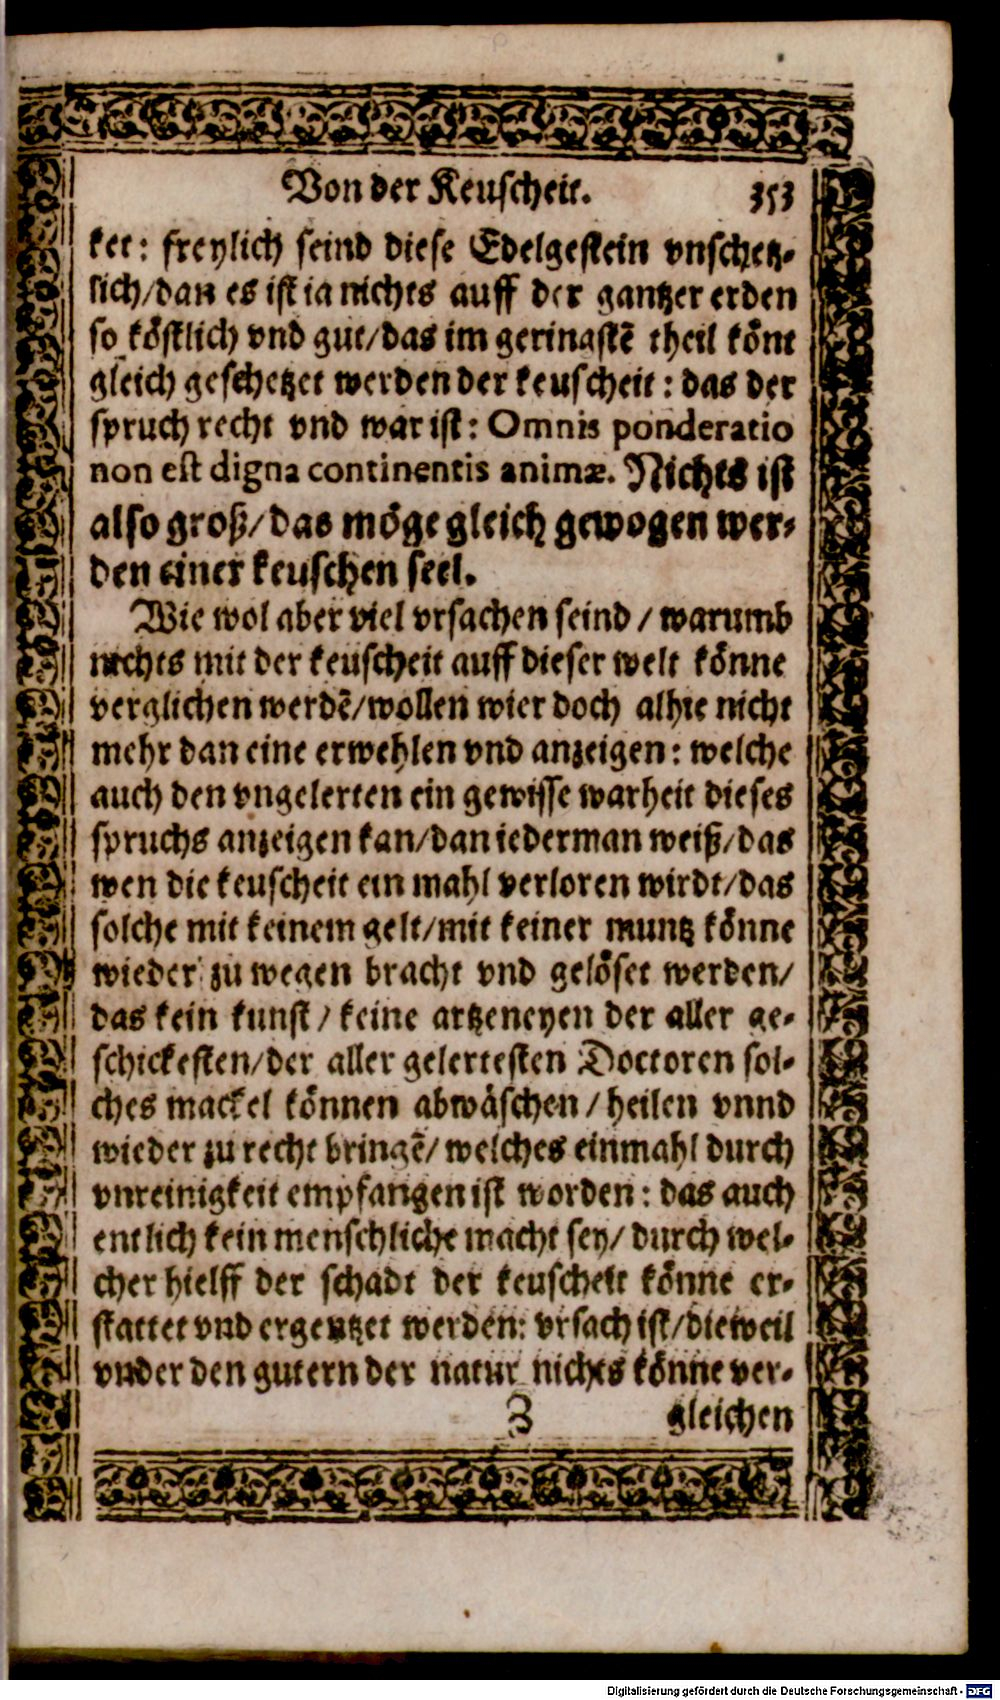 Von der Keuscheit. 353
ket: freylich seind diese Edelgestein vnschetz-
lich/dan es ist ia nichts auff der gantzer erden
so köstlich vnd gut/das im geringstē theil könt
gleich geschetzet werden der keuscheit: das der
spruch recht vnd war ist: Omnis ponderatio
non est digna continentis animæ. Nichts ist
also groß/das möge gleich gewogen wer-
den einer keuschen seel.
Wie wol aber viel vrsachen seind / warumb
nichts mit der keuscheit auff dieser welt könne
verglichen werdē/wollen wier doch alhie nicht
mehr dan eine erwehlen vnd anzeigen: welche
auch den vngelerten ein gewisse warheit dieses
spruchs anzeigen kan/dan iederman weiß/das
wen die keuscheit ein mahl verloren wirdt/das
solche mit keinem gelt/mit keiner muntz könne
wieder zu wegen bracht vnd gelöset werden/
das kein kunst / keine artzeneyen der aller ge-
schickesten/der aller gelertesten Doctoren sol-
ches mackel können abwäschen / heilen vnnd
wieder zu recht bringē/ welches einmahl durch
vnreinigkeit empfangen ist worden: das auch
entlich kein menschliche macht sey/ durch wel-
cher hielff der schadt der keuscheit könne er-
stattet vnd ergentzet werden: vrsach ist/dieweil
vnder den gutern der natur nichts könne ver-
Z gleichen
Digitalisierung gefördert durch die Deutsche Forschungsgemeinschaft - DFG